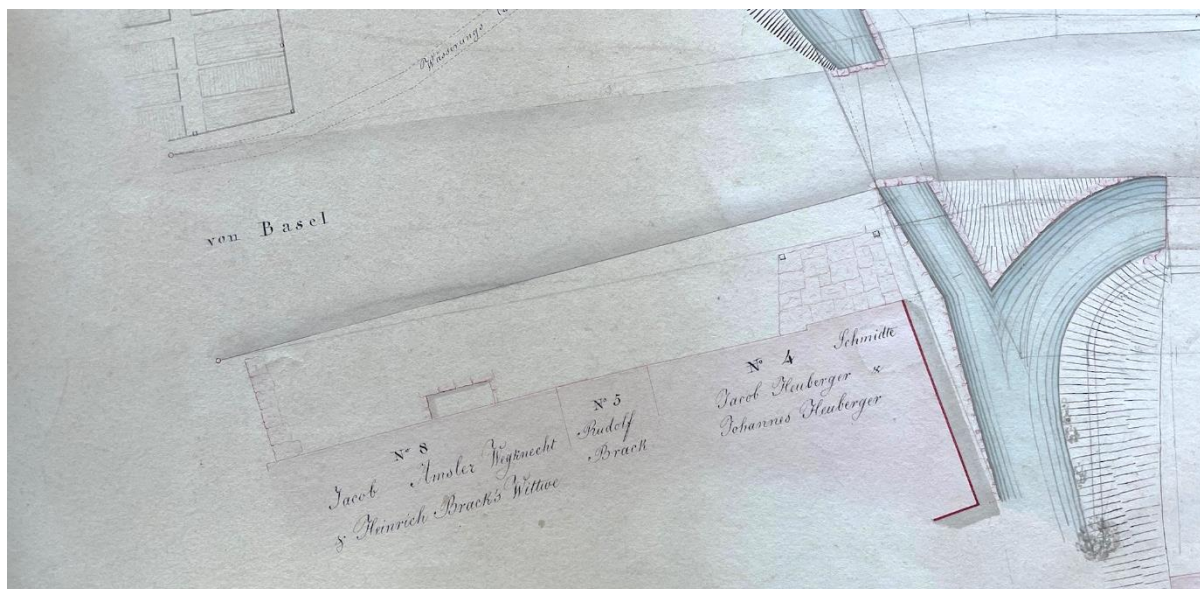 Wässerungs
von Basel
Nº 8
Jacob Amsler Wegknecht
& Heinrich Brack's Wittwe
Nº 5
Rudolf
Brack
Nº 4 Schmidte
Jacob Heuberger &
Johannes Heuberger